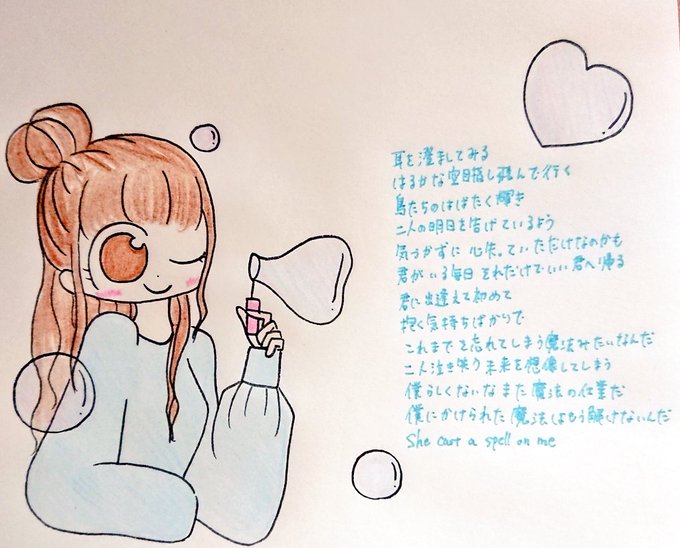 耳を澄ましてみる
はるかな空目指し飛んで行く
鳥たちのはばたく輝き
二人の明日を告げているよう
気づかずに 心失っていただけなのかも
君がいる毎日 それだけでいい 君へ帰る
君に出逢えて初めて
抱く気持ちばかりで
これまでを忘れてしまう魔法みたいなんだ
二人泣き笑う 未来を想像してしまう
僕らしくないな また 魔法の仕業だ
僕にかけられた 魔法はもう解けないんだ
She cast a spell on me